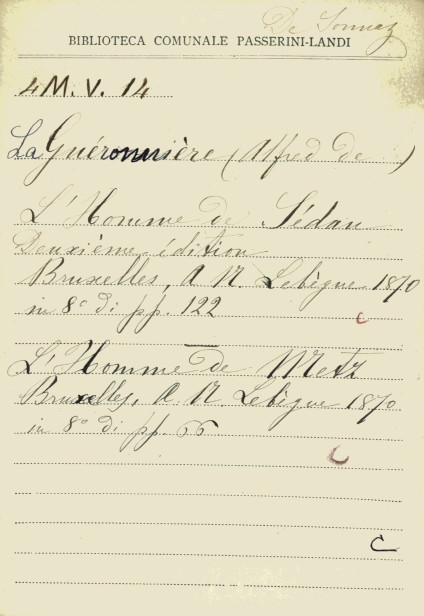 De Sonnaz
BIBLIOTECA COMUNALE PASSERINI-LANDI
4 M. V. 14
La Guéronnière (Alfred de)
L'Homme de Sédan
Deuxième édition
Bruxelles, A. N. Lebègue 1870
in 8° di pp. 122
c
L'Homme de Metz
Bruxelles, A. N. Lebègue 1870
in 8° di pp. 66
C
C